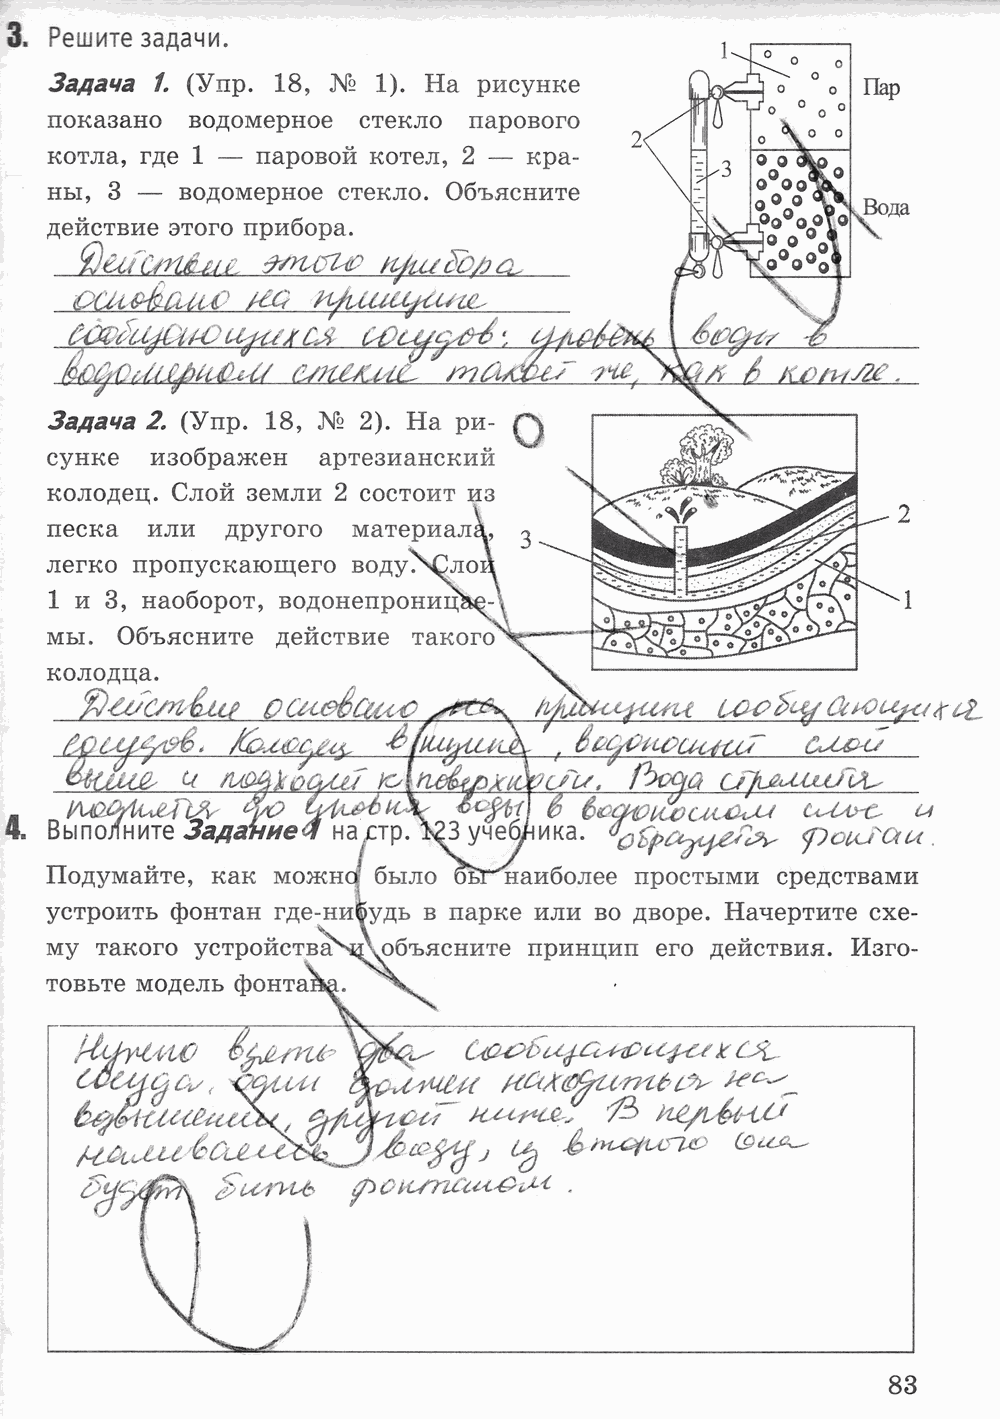 3. Решите задачи.
Задача 1. (Упр. 18, № 1). На рисунке
показано водомерное стекло парового
котла, где 1 — паровой котел, 2 — кра-
ны, 3 — водомерное стекло. Объясните
действие этого прибора.
1
Пар
2
3
Вода
Действие этого прибора
основано на принципе
сообщающихся сосудов: уровень воды в
водомерном стекле такой же, как в котле.
Задача 2. (Упр. 18, № 2). На ри-
сунке изображен артезианский
колодец. Слой земли 2 состоит из
песка или другого материала,
легко пропускающего воду. Слои
1 и 3, наоборот, водонепроницае-
мы. Объясните действие такого
колодца.
2
3
1
Действие основано на принципе сообщающихся
сосудов. Колодец в нщине, водоносный слой
выше и подходит к поверхности. Вода стремится
подняться до уровня воды в водоносном слое и
образуется фонтан.
4. Выполните Задание 1 на стр. 123 учебника.
Подумайте, как можно было бы наиболее простыми средствами
устроить фонтан где-нибудь в парке или во дворе. Начертите схе-
му такого устройства и объясните принцип его действия. Изго-
товьте модель фонтана.
Нужно взять два сообщающихся
сосуда, один должен находиться на
возвышении, другой ниже. В первый
наливаешь воду, из второго она
будет бить фонтаном.
83